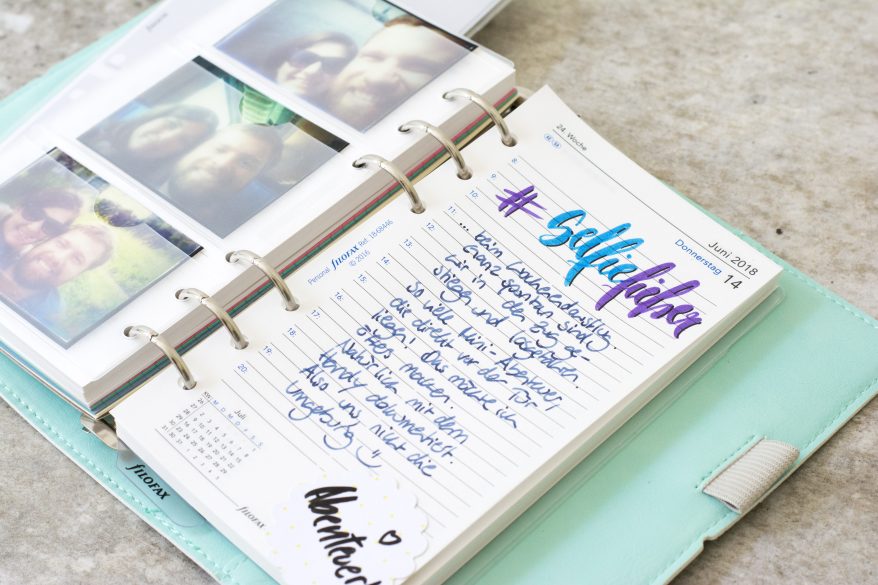 24. Woche
Juni 2018
Donnerstag 14
#selfiefieber
8
9
10
11
12
13
14
15
16
17
18
19
20
... beim Wochenendausflug.
Ganz spontan sind
wir in den Zug ge-
stiegen und losgefahren.
So viele Mini-Abenteuer
die direkt vor der Tür
liegen! Das möchte ich
öfters machen.
Natürlich mit dem
Handy dokumentiert.
Also uns nicht die
Umgebung
Personal FILOFAX
© 2016
Juli
M D M D F S S
FILOFAX
FILOFAX
Abenteuer